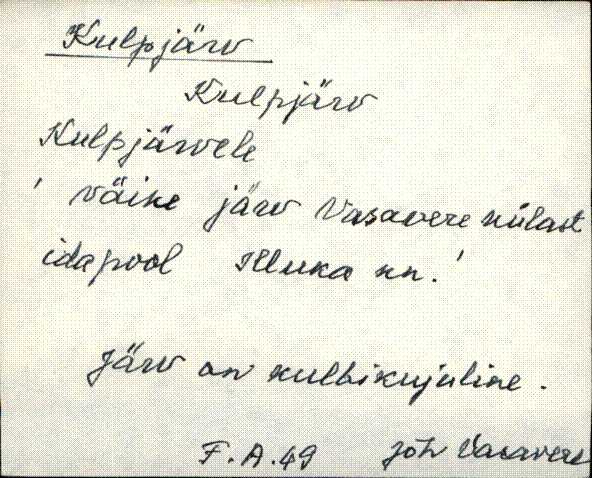 Kulpjärv
Kulpjärv
Kulpjärvele
' väike järv Vasavere külast
idapool Illuka kn.'
Järv on kulbikujuline.
F. A. 49 Jõh Vasavere